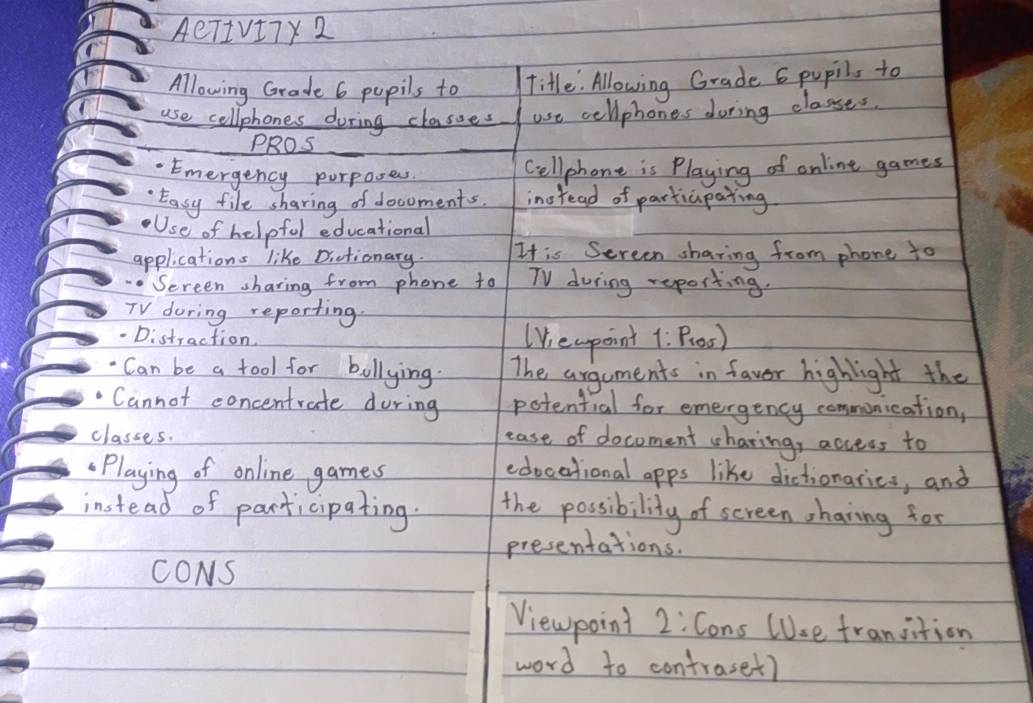 ACTIVITY 2
Allowing Grade 6 pupils to
use cellphones during classes
PROS
• Emergency purposes.
• Easy file sharing of documents.
• Use of helpful educational
applications like Dictionary.
•• Screen sharing from phone to
TV during reporting.
• Distraction.
• Can be a tool for bullying.
• Cannot concentrate during
classes.
• Playing of online games
instead of participating.
CONS
Title: Allowing Grade 6 pupils to
use cellphones during classes.
Cellphone is Playing of online games
instead of participating
It is Screen sharing from phone to
TV during reporting.
(Viewpoint 1: Pros)
The arguments in favor highlight the
potential for emergency communication,
ease of document sharing, access to
educational apps like dictionaries, and
the possibility of screen sharing for
presentations.
Viewpoint 2: Cons (Use transition
word to contraset)